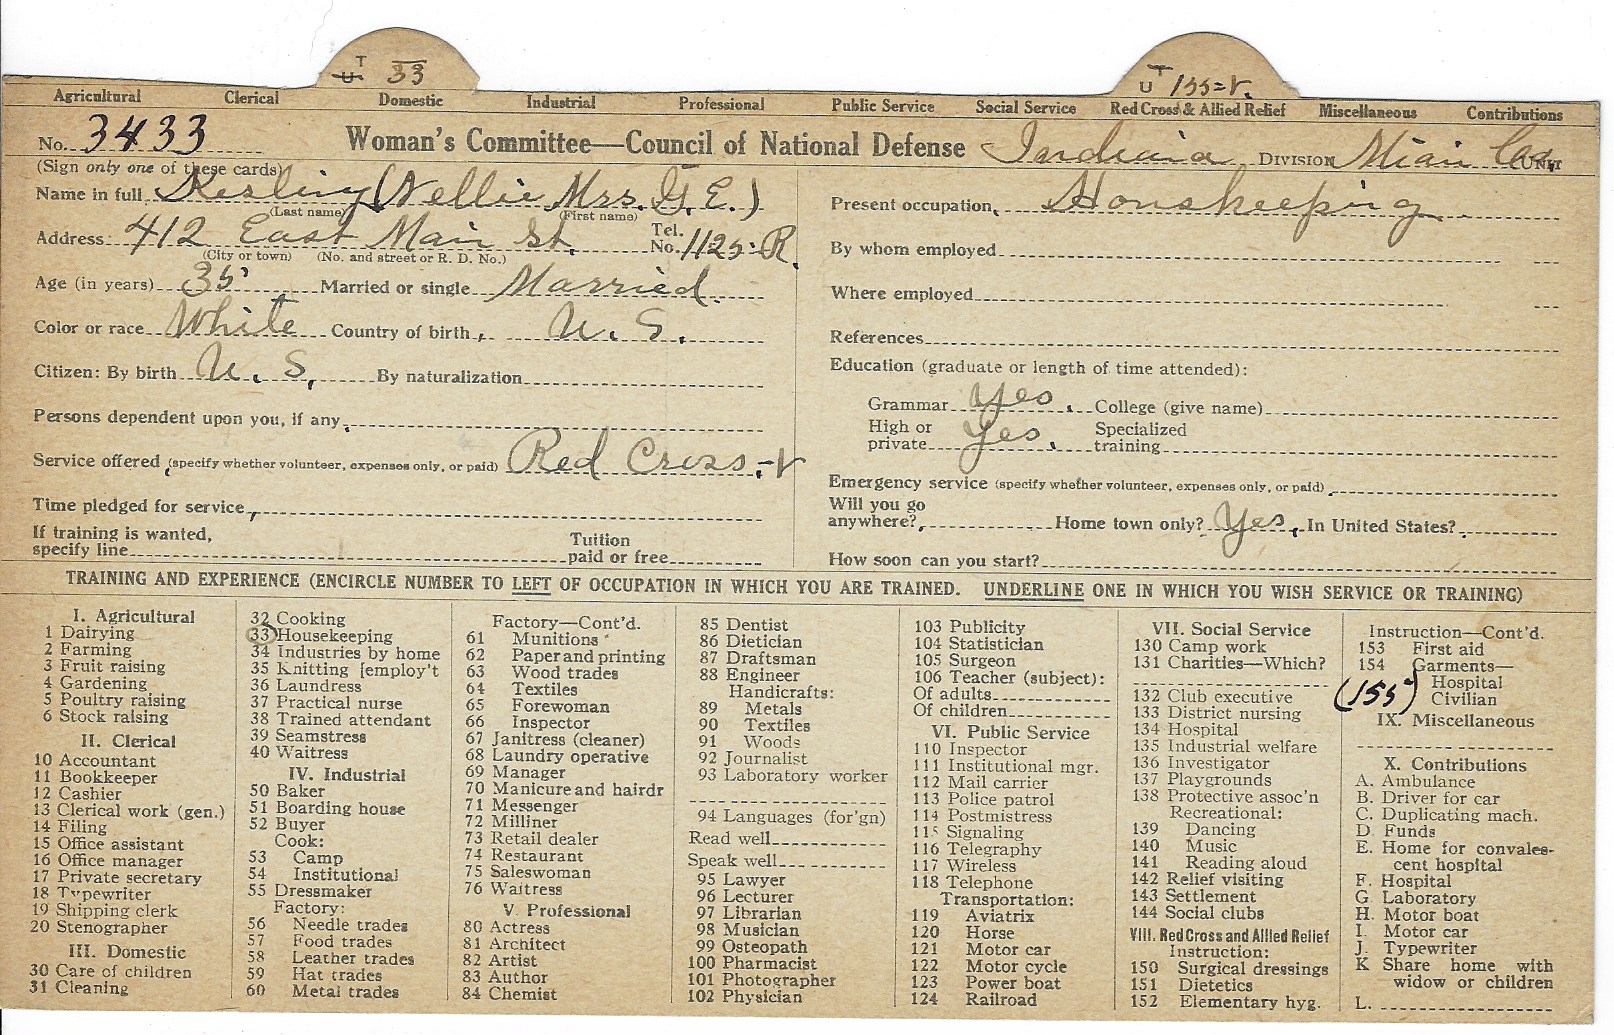 T
U 33
T
U 155=v.
Agricultural Clerical Domestic Industrial Professional Public Service Social Service Red Cross & Allied Relief Miscellaneous Contributions
No. 3433 Woman's Committee—Council of National Defense Indiana DIVISION Miami Co. UNIT
(Sign only one of these cards)
Name in full Kesling (Nellie Mrs. G. E.)
(Last name) (First name)
Address 412 East Main St. Tel. No. 1125-R.
(City or town) (No. and street or R. D. No.)
Age (in years) 35 Married or single Married.
Color or race White Country of birth U. S.
Citizen: By birth U. S. By naturalization
Persons dependent upon you, if any
Service offered (specify whether volunteer, expenses only, or paid) Red Cross.-v
Time pledged for service
If training is wanted,
specify line Tuition paid or free
Present occupation Houskeeping
By whom employed
Where employed
References
Education (graduate or length of time attended):
Grammar Yes. College (give name)
High or private Yes. Specialized training
Emergency service (specify whether volunteer, expenses only, or paid)
Will you go
anywhere? Home town only? Yes. In United States?
How soon can you start?
TRAINING AND EXPERIENCE (ENCIRCLE NUMBER TO LEFT OF OCCUPATION IN WHICH YOU ARE TRAINED. UNDERLINE ONE IN WHICH YOU WISH SERVICE OR TRAINING)
I. Agricultural
1 Dairying
2 Farming
3 Fruit raising
4 Gardening
5 Poultry raising
6 Stock raising
II. Clerical
10 Accountant
11 Bookkeeper
12 Cashier
13 Clerical work (gen.)
14 Filing
15 Office assistant
16 Office manager
17 Private secretary
18 Typewriter
19 Shipping clerk
20 Stenographer
III. Domestic
30 Care of children
31 Cleaning
32 Cooking
33 Housekeeping
34 Industries by home
35 Knitting [employ't
36 Laundress
37 Practical nurse
38 Trained attendant
39 Seamstress
40 Waitress
IV. Industrial
50 Baker
51 Boarding house
52 Buyer
Cook:
53 Camp
54 Institutional
55 Dressmaker
Factory:
56 Needle trades
57 Food trades
58 Leather trades
59 Hat trades
60 Metal trades
Factory—Cont'd.
61 Munitions
62 Paper and printing
63 Wood trades
64 Textiles
65 Forewoman
66 Inspector
67 Janitress (cleaner)
68 Laundry operative
69 Manager
70 Manicure and hairdr
71 Messenger
72 Milliner
73 Retail dealer
74 Restaurant
75 Saleswoman
76 Waitress
V. Professional
80 Actress
81 Architect
82 Artist
83 Author
84 Chemist
85 Dentist
86 Dietician
87 Draftsman
88 Engineer
Handicrafts:
89 Metals
90 Textiles
91 Woods
92 Journalist
93 Laboratory worker
94 Languages (for'gn)
Read well
Speak well
95 Lawyer
96 Lecturer
97 Librarian
98 Musician
99 Osteopath
100 Pharmacist
101 Photographer
102 Physician
103 Publicity
104 Statistician
105 Surgeon
106 Teacher (subject):
Of adults
Of children
VI. Public Service
110 Inspector
111 Institutional mgr.
112 Mail carrier
113 Police patrol
114 Postmistress
115 Signaling
116 Telegraphy
117 Wireless
118 Telephone
Transportation:
119 Aviatrix
120 Horse
121 Motor car
122 Motor cycle
123 Power boat
124 Railroad
VII. Social Service
130 Camp work
131 Charities—Which?
132 Club executive
133 District nursing
134 Hospital
135 Industrial welfare
136 Investigator
137 Playgrounds
138 Protective assoc'n
Recreational:
139 Dancing
140 Music
141 Reading aloud
142 Relief visiting
143 Settlement
144 Social clubs
VIII. Red Cross and Allied Relief
Instruction:
150 Surgical dressings
151 Dietetics
152 Elementary hyg.
Instruction—Cont'd.
153 First aid
154 Garments—
155 Hospital
Civilian
IX. Miscellaneous
X. Contributions
A. Ambulance
B. Driver for car
C. Duplicating mach.
D. Funds
E. Home for convales-
cent hospital
F. Hospital
G. Laboratory
H. Motor boat
I. Motor car
J. Typewriter
K Share home with
widow or children
L.